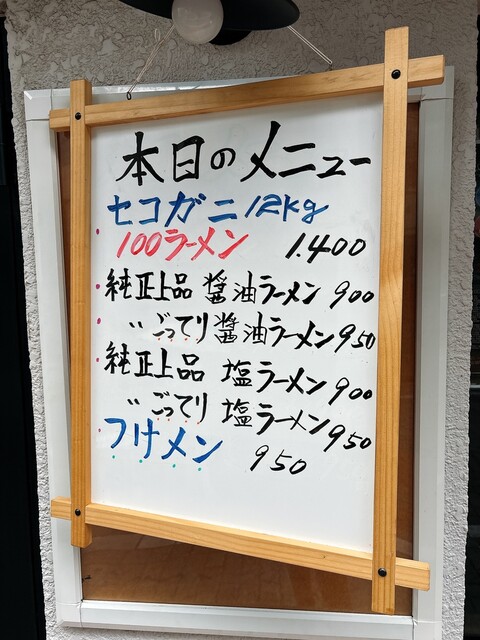 本日のメニュー
セコガニ 12kg
100ラーメン 1.400
純正上品 醤油ラーメン 900
〃 ごってり 醤油ラーメン 950
純正上品 塩ラーメン 900
〃 ごってり 塩ラーメン 950
つけメン 950